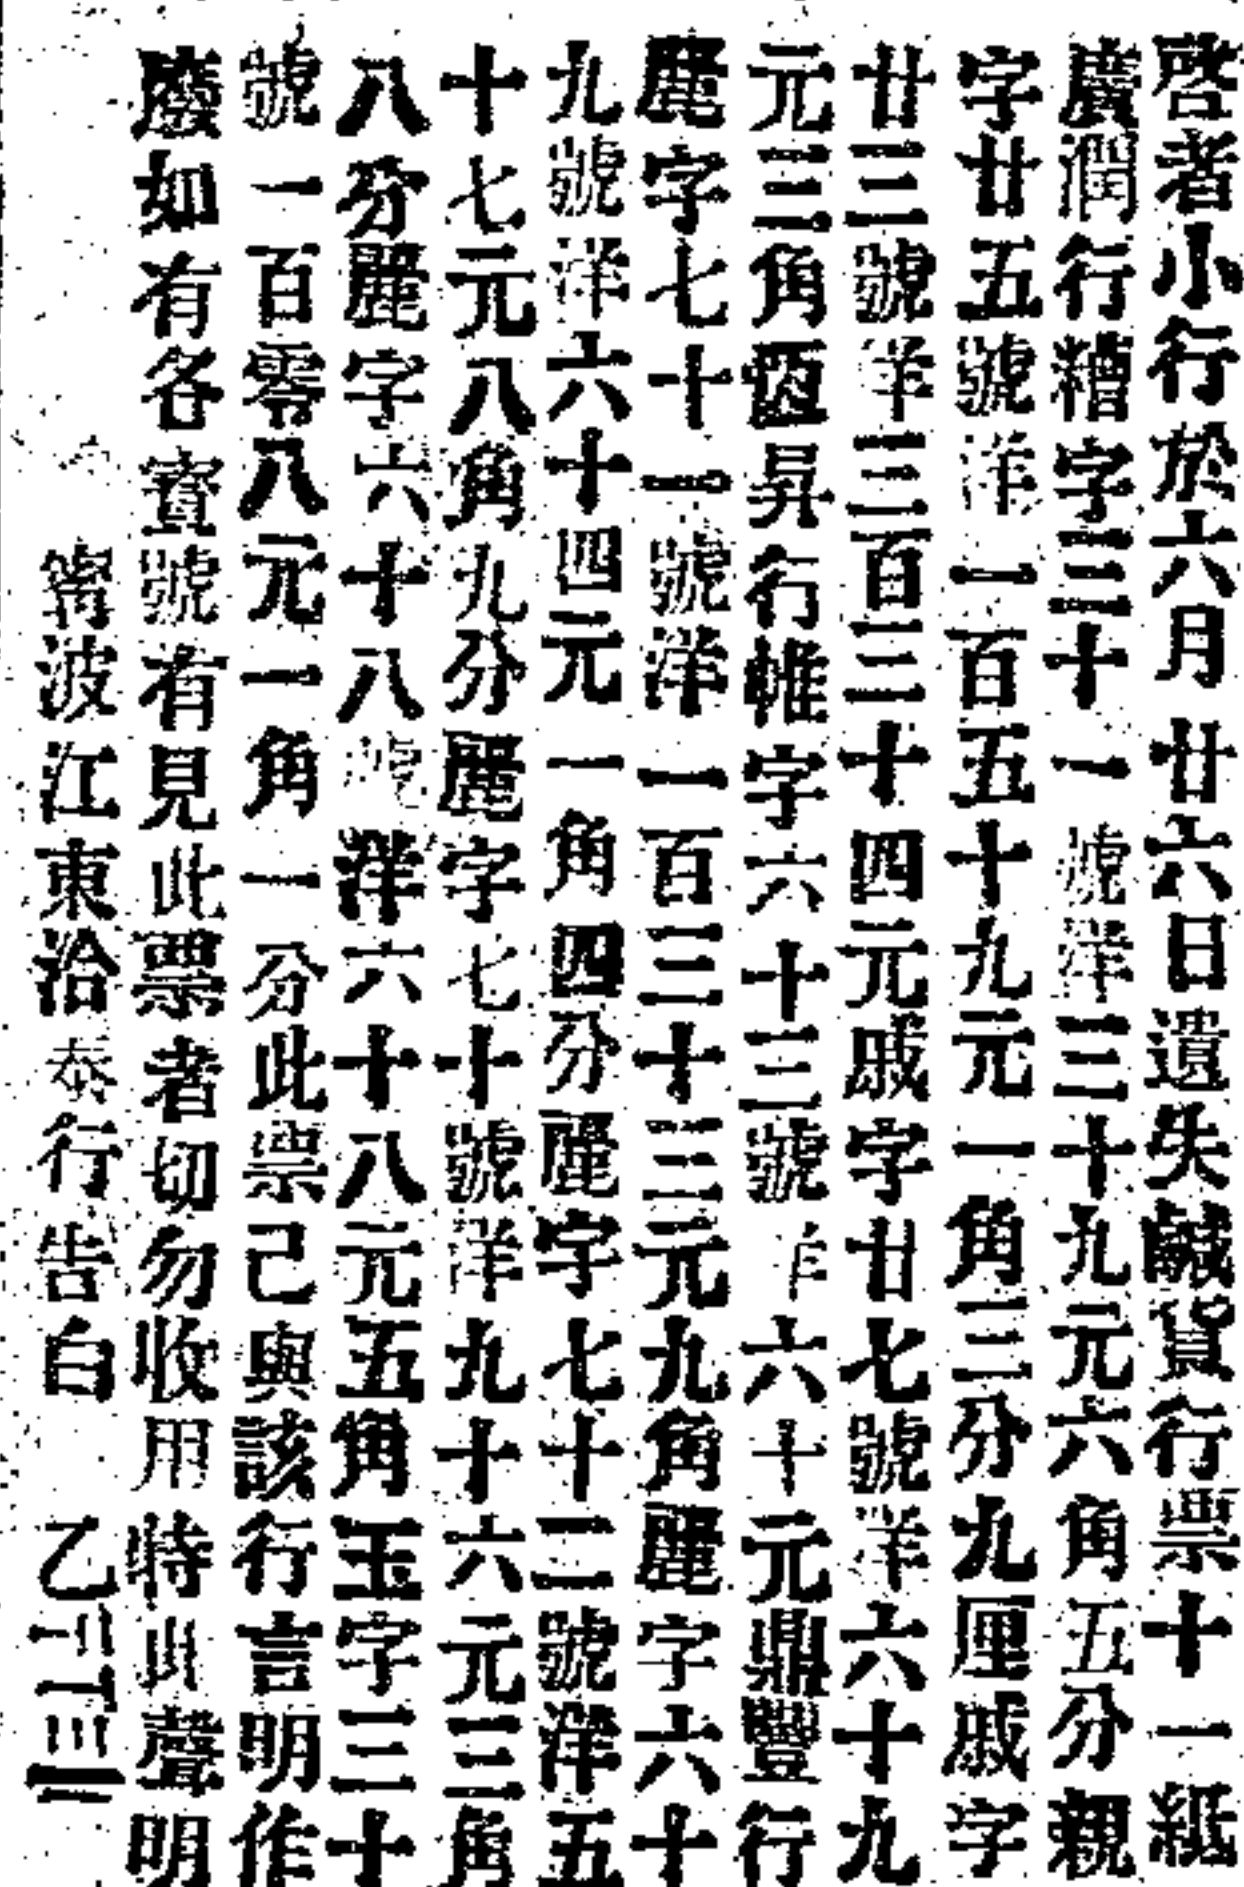 啓者小行於六月廿六日遺失鹹貨行票十一紙
廣潤行糟字三十一號洋三十九元六角五分親
字廿五號洋一百五十九元一角三分九厘戚字
廿三號洋三百三十四元戚字廿七號洋六十九
元三角恆昇行帷字六十三號洋六十元鼎豐行
麗字七十一號洋一百三十三元九角麗字六十
九號洋六十四元一角四分麗字七十二號洋五
十七元八角九分麗字七十號洋九十六元三角
八分麗字六十八號洋六十八元五角玉字三十
號一百零八元一角一分此票已與該行言明作
廢如有各寶號有見此票者切勿收用特此聲明
甯波江東洽泰行告白 乙